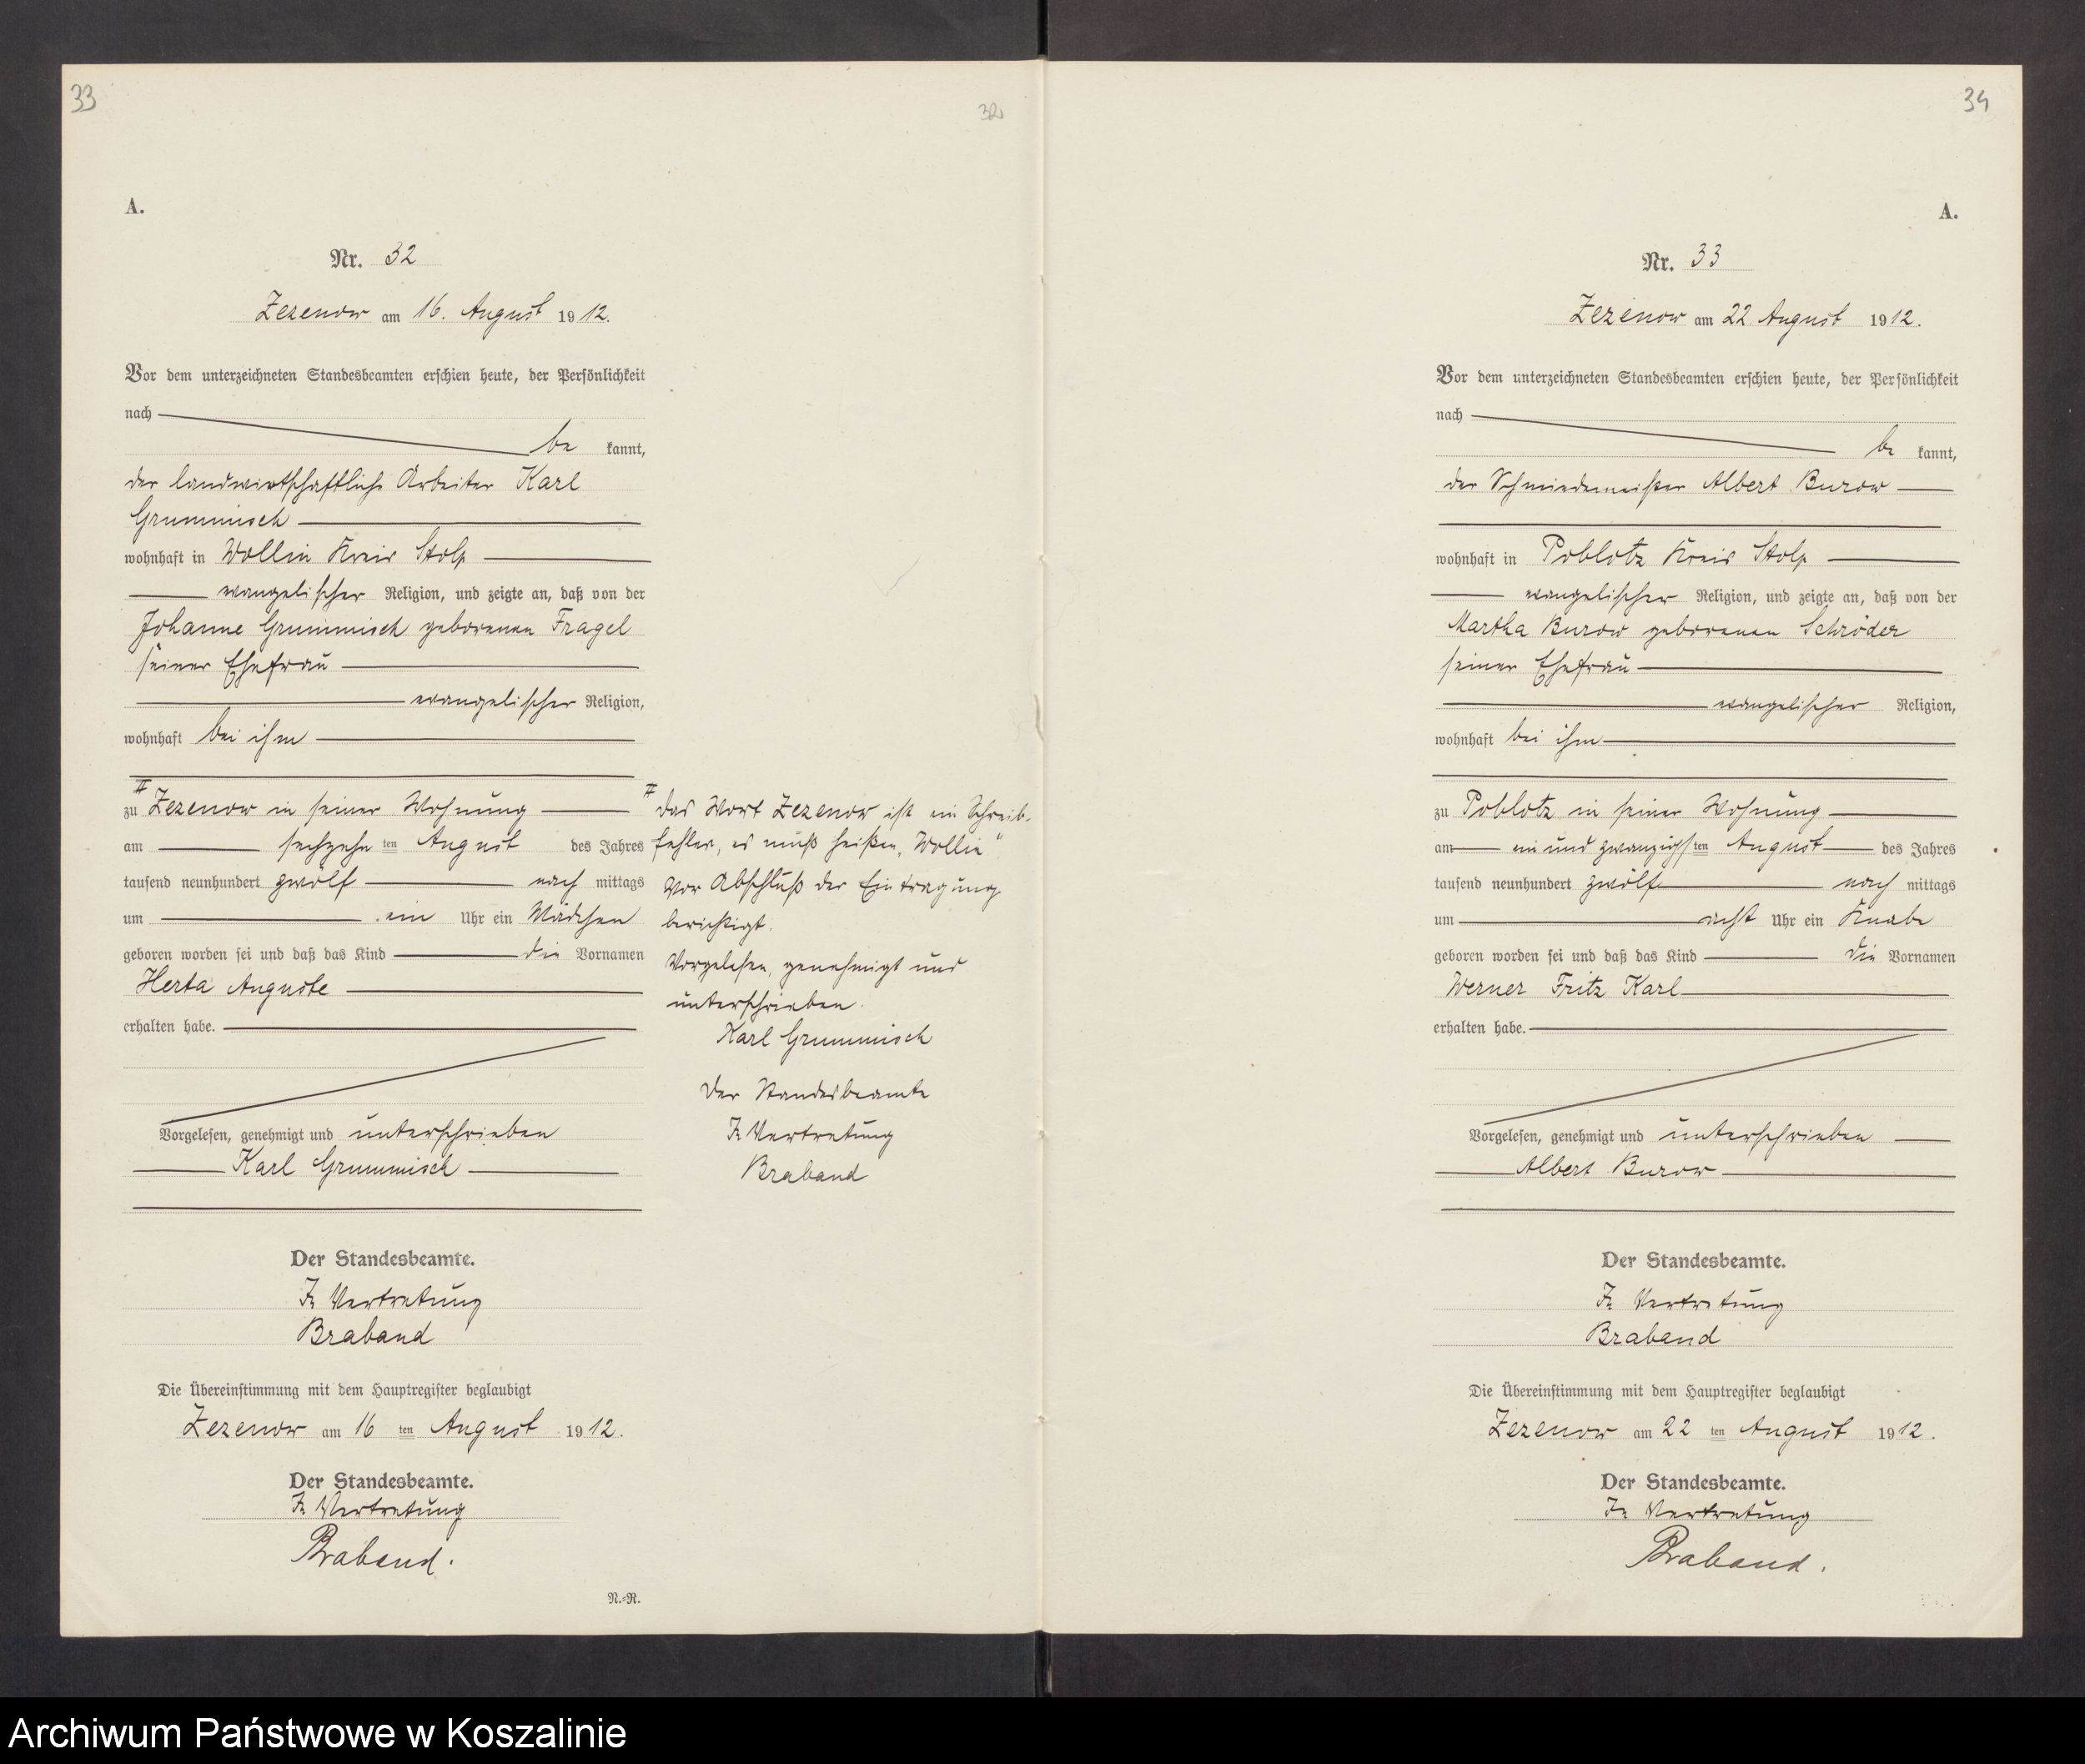 33
32
A.
Nr. 32
Zezenow am 16. August 1912.
Vor dem unterzeichneten Standesbeamten erschien heute, der Persönlichkeit
nach
be kannt,
der landwirtschaftliche Arbeiter Karl
Grummisch
wohnhaft in Wollin Kreis Stolp
evangelischer Religion, und zeigte an, daß von der
Johanne Grummisch geborenen Fragel
seiner Ehefrau
evangelischer Religion,
wohnhaft bei ihm
zu Zezenow in seiner Wohnung
am sechzehn ten August des Jahres
tausend neunhundert zwölf nach mittags
um ein Uhr ein Mädchen
geboren worden sei und daß das Kind die Vornamen
Herta Auguste
erhalten habe.
Vorgelesen, genehmigt und unterschrieben
Karl Grummisch
Der Standesbeamte.
In Vertretung
Braband
Die Übereinstimmung mit dem Hauptregister beglaubigt
Zezenow am 16 ten August 1912.
Der Standesbeamte.
In Vertretung
Braband.
N.-R.
das Wort Zezenow ist ein Schreib-
fehler, es muß heißen „Wollin“
Vor Abschluß der Eintragung
berichtigt.
Vorgelesen, genehmigt und
unterschrieben.
Karl Grummisch
Der Standesbeamte
In Vertretung
Braband
34
A.
Nr. 33
Zezenow am 22 August 1912.
Vor dem unterzeichneten Standesbeamten erschien heute, der Persönlichkeit
nach
be kannt,
der Schmiedemeister Albert Burow
wohnhaft in Poblotz Kreis Stolp
evangelischer Religion, und zeigte an, daß von der
Martha Burow geborenen Schröder
seiner Ehefrau
evangelischer Religion,
wohnhaft bei ihm
zu Poblotz in seiner Wohnung
am ein und zwanzigs ten August des Jahres
tausend neunhundert zwölf nach mittags
um acht Uhr ein Knabe
geboren worden sei und daß das Kind die Vornamen
Werner Fritz Karl
erhalten habe.
Vorgelesen, genehmigt und unterschrieben
Albert Burow
Der Standesbeamte.
In Vertretung
Braband
Die Übereinstimmung mit dem Hauptregister beglaubigt
Zezenow am 22 ten August 1912.
Der Standesbeamte.
In Vertretung
Braband.
Archiwum Państwowe w Koszalinie